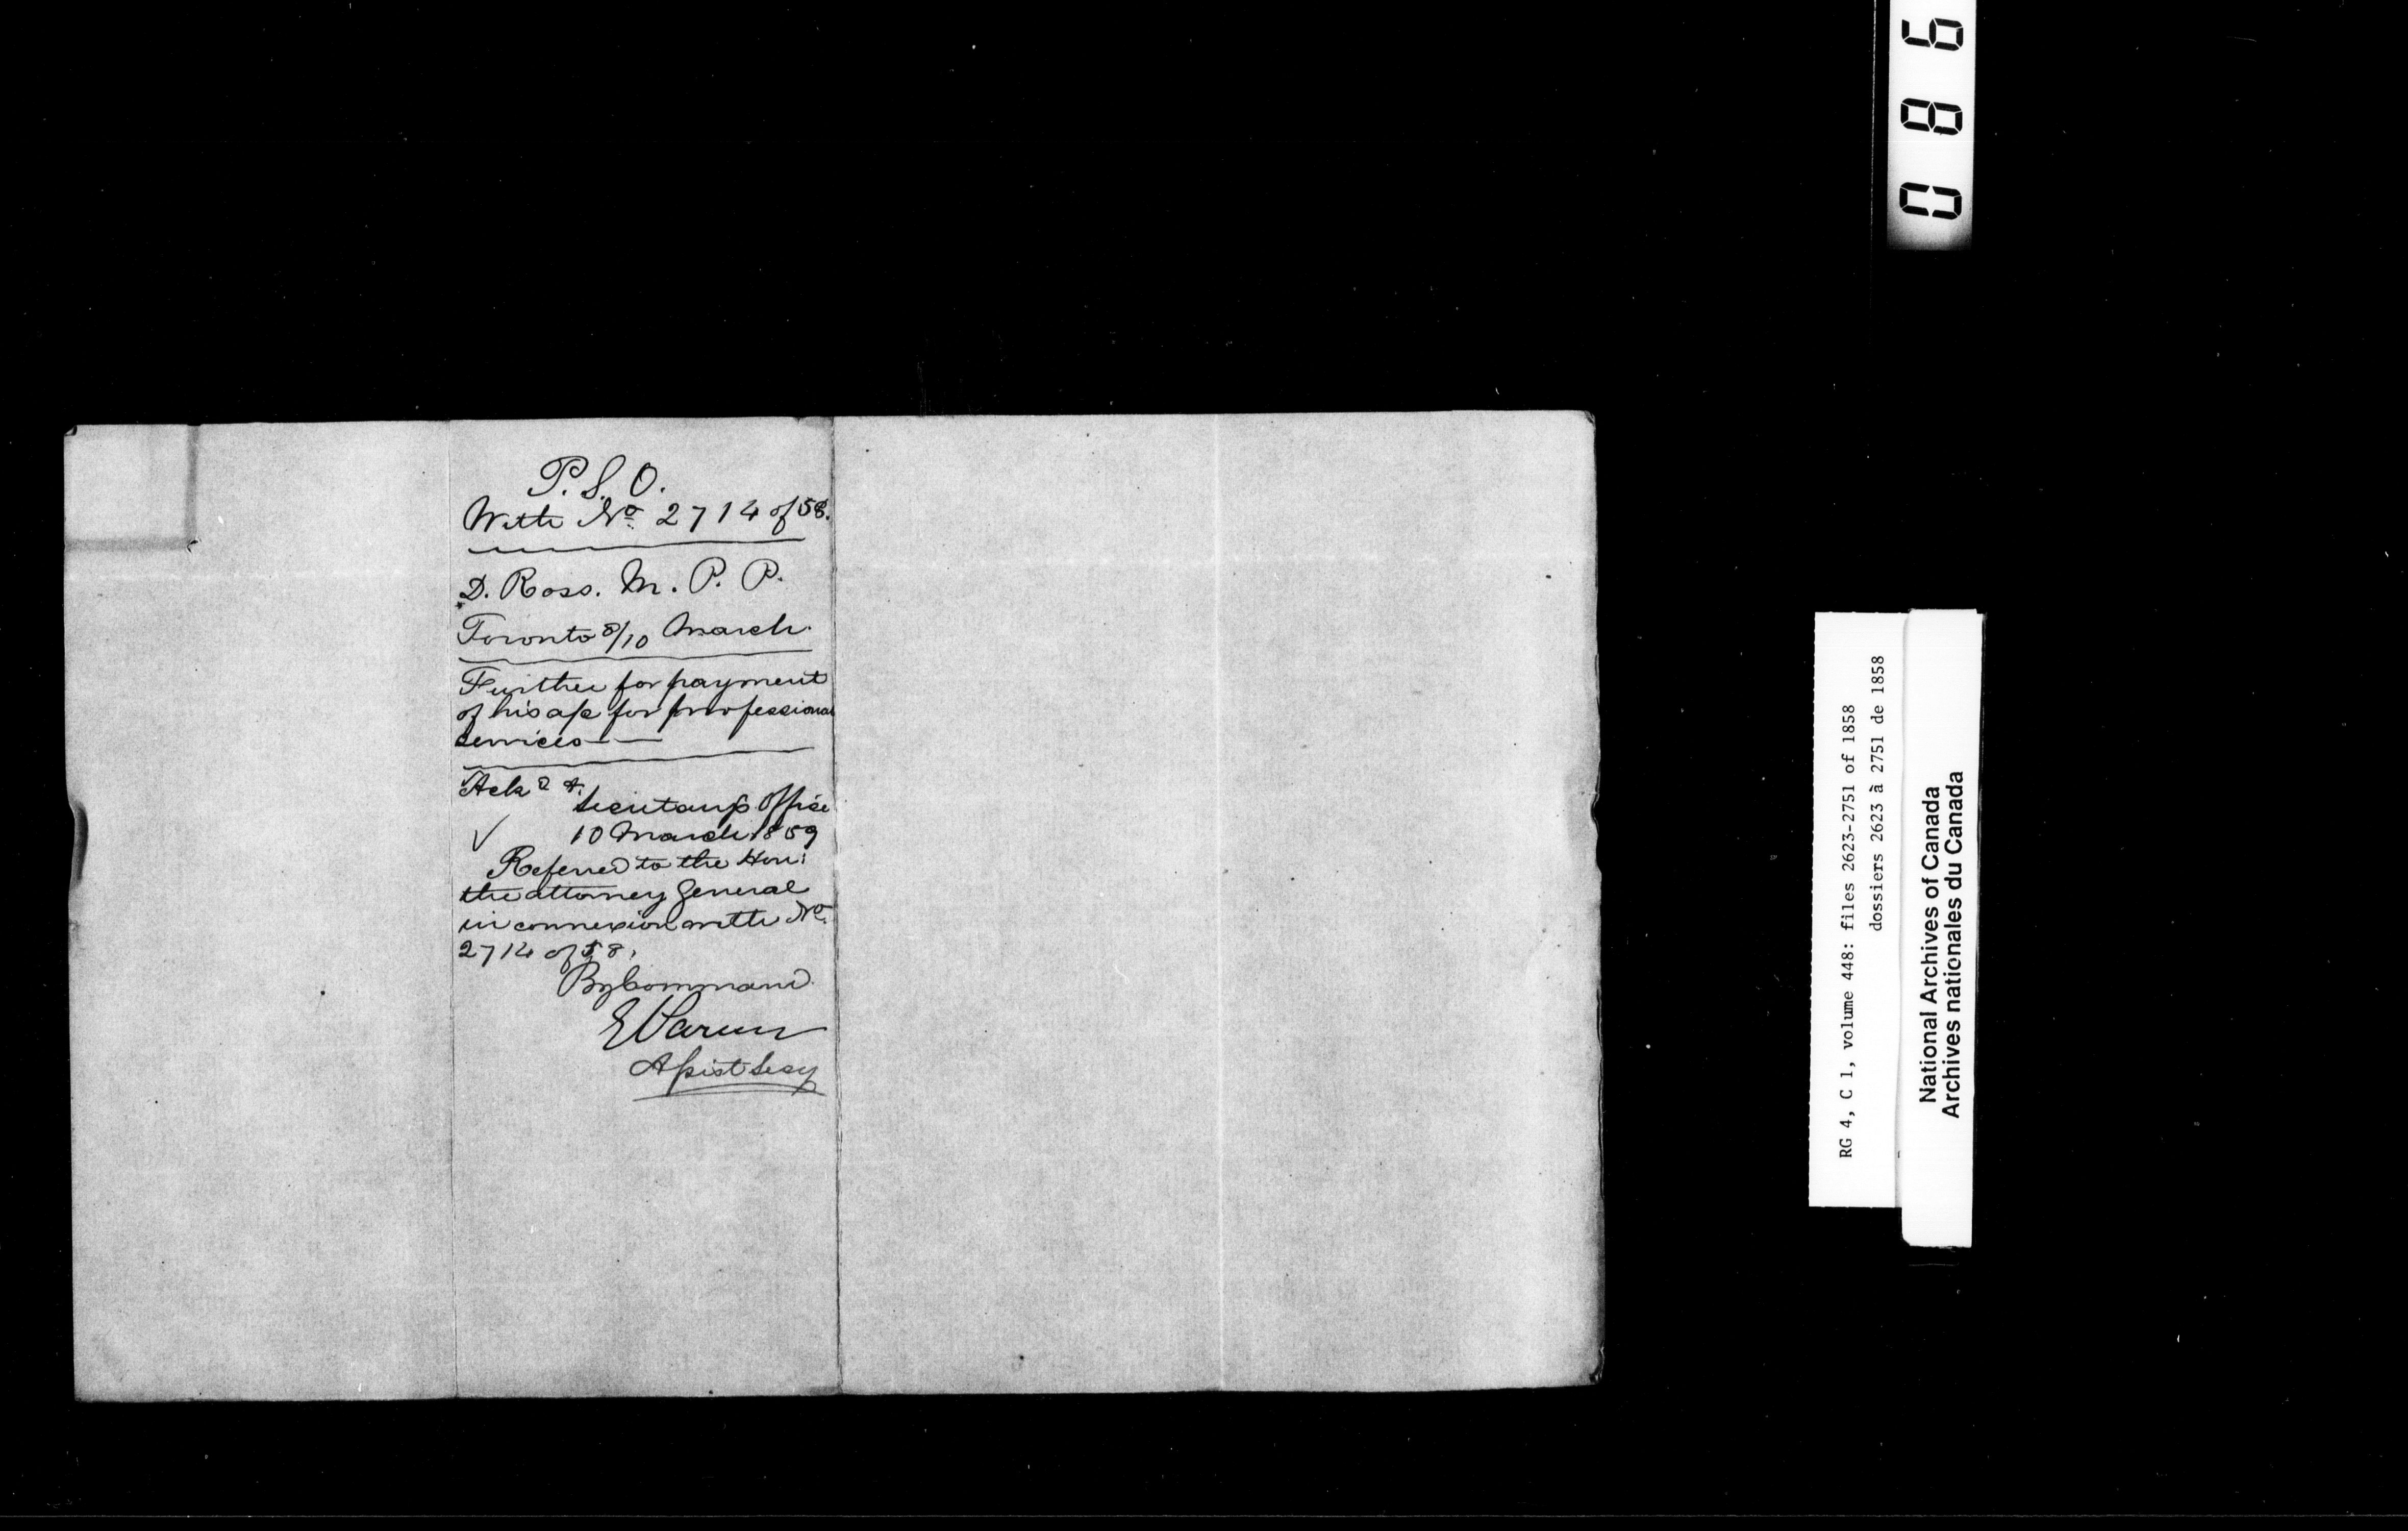 P.S.O.
With No 2714 of 58.
D. Ross. M.P.P.
Toronto 8/10 March.
Further for payment
of his a/c for professional
services——
Ackd
Secretary's Office
✓ 10 March 1859
Referred to the Hon:
the attorney General
in connexion with No.
2714 of 58.
By Command
E Parent
Assist Secy
086
RG 4, C 1, volume 448: files 2623-2751 of 1858
dossiers 2623 à 2751 de 1858
National Archives of Canada
Archives nationales du Canada